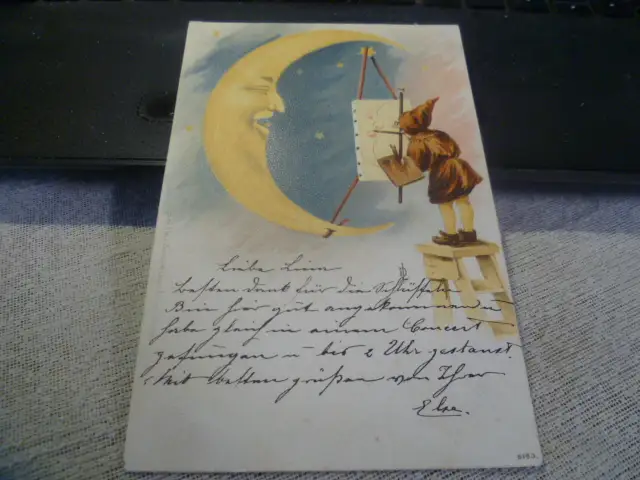 Liebe Liesn
besten Dank für die Schlüsseln
Bin hier gut angekommen u
habe gleich in einem Concert
gesungen u bis 2 Uhr getanzt.
Mit besten Grüßen von Ihrer
Else.